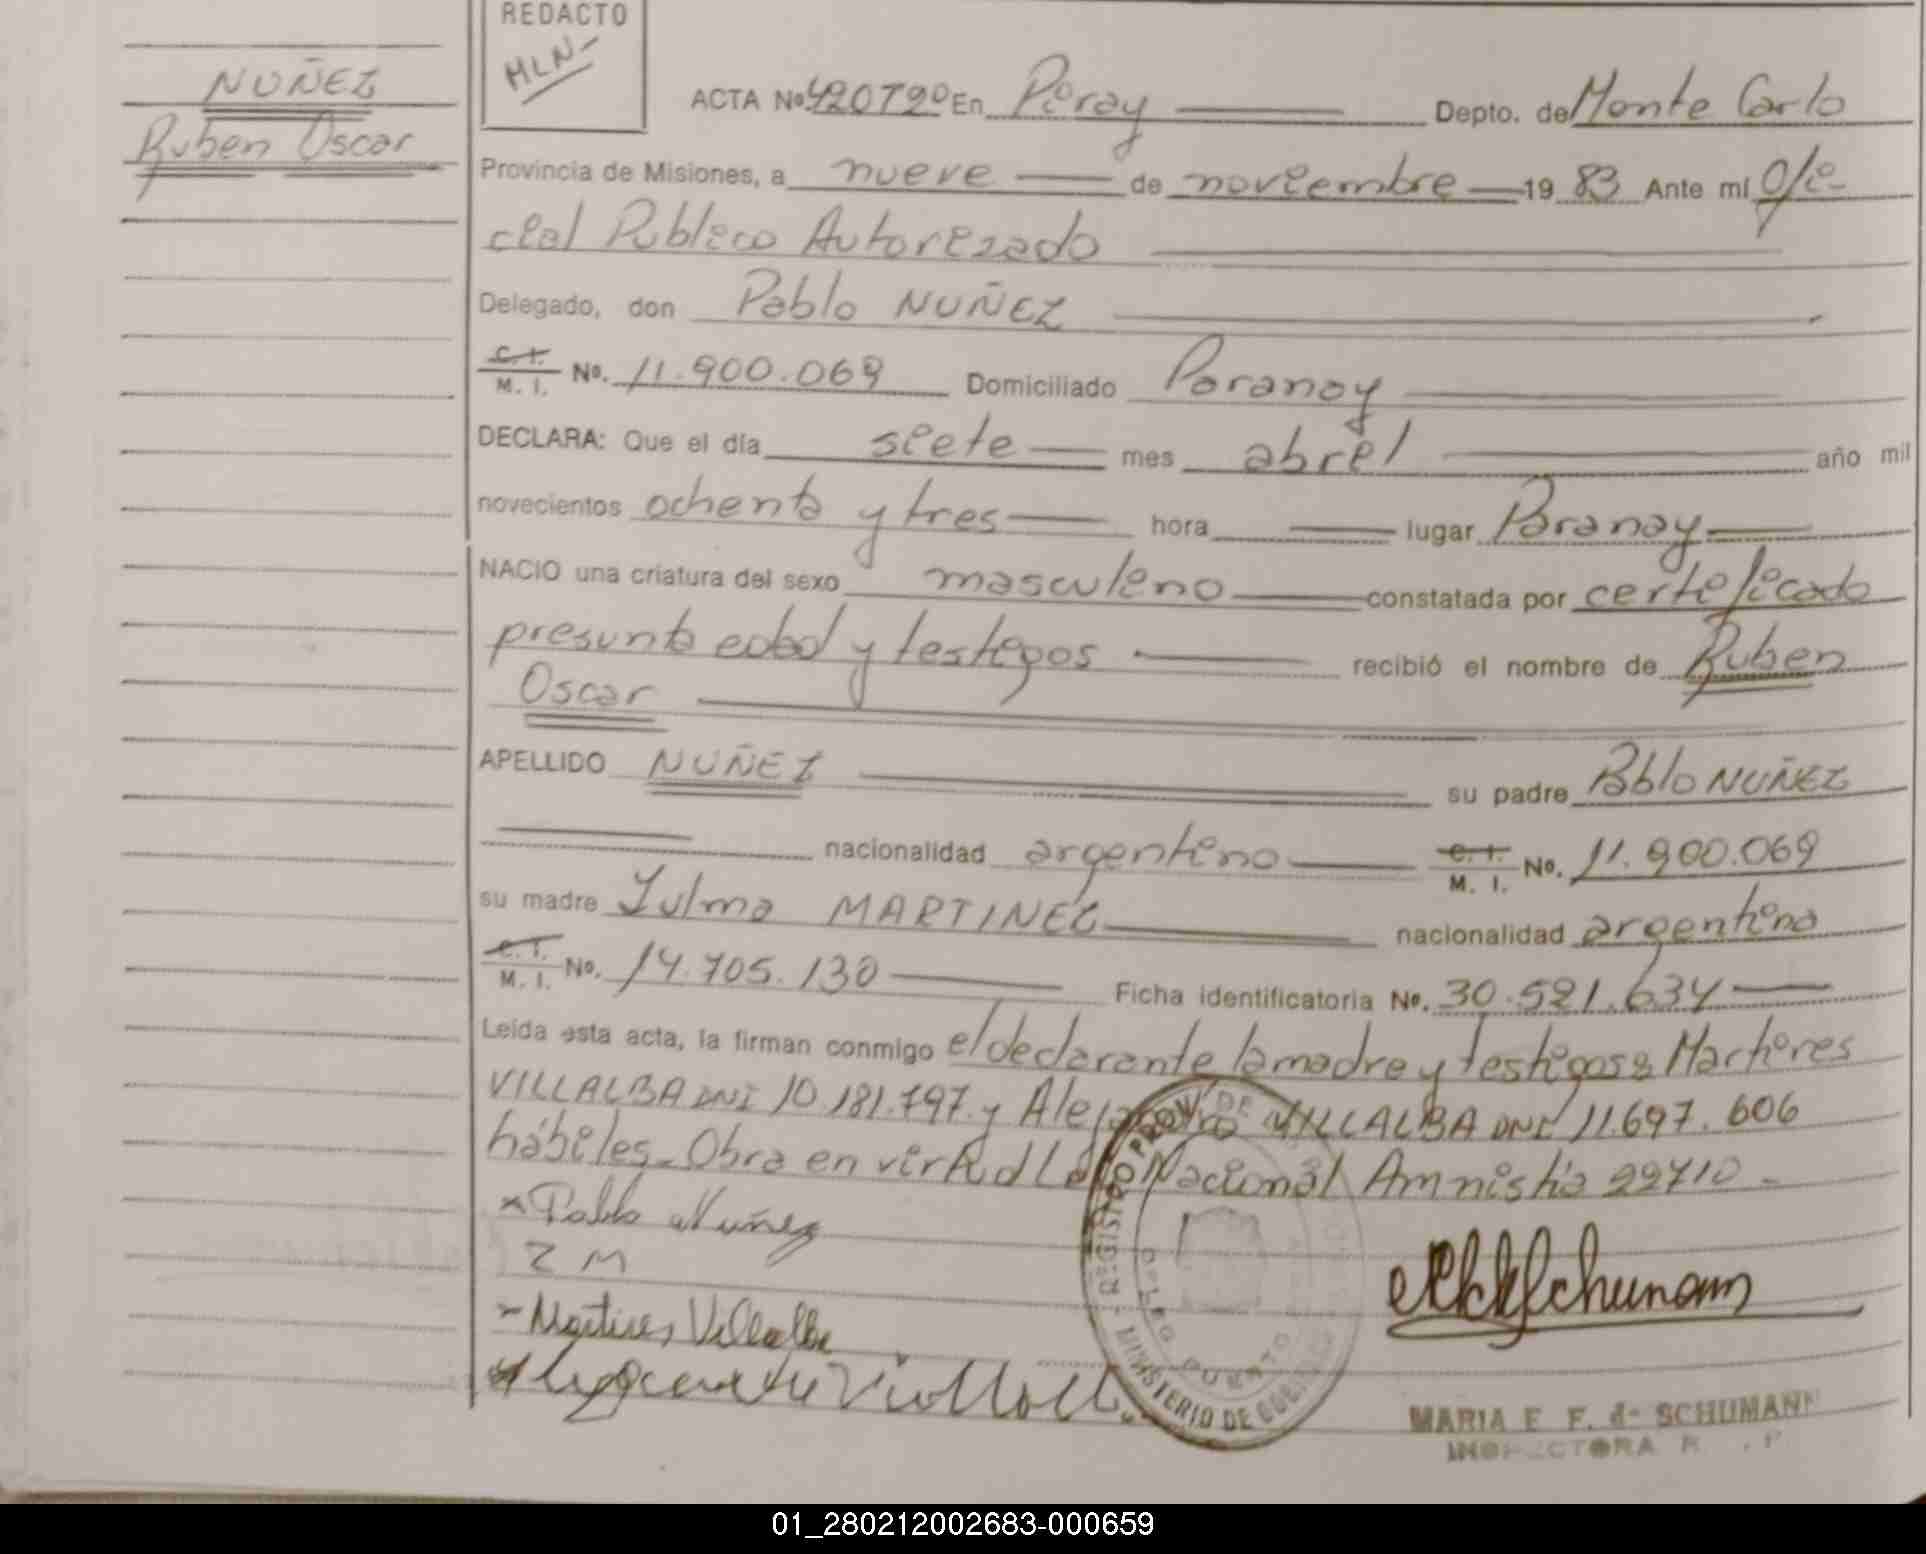 REDACTO
MLN-
NUÑEZ
Ruben Oscar
ACTA Nº 420T2º En Piray Depto. de Monte Carlo
Provincia de Misiones, a nueve de noviembre 19 83 Ante mí Ofi-
cial Publico Autorizado
Delegado, don Pablo NUÑEZ
C. I. M. I. Nº. 11.900.069 Domiciliado Paranay
DECLARA: Que el día siete mes abril año mil
novecientos ochenta y tres hora lugar Paranay
NACIO una criatura del sexo masculino constatada por certificado
presunta edad y testigos recibió el nombre de Ruben
Oscar
APELLIDO NUÑEZ su padre Pablo NUÑEZ
nacionalidad argentino C. I. M. I. Nº. 11.900.069
su madre Zulma MARTINEZ nacionalidad argentina
C. I. M. I. Nº. 14.705.130 Ficha identificatoria Nº. 30.521.634
Leída esta acta, la firman conmigo el declarante la madre y testigos: Martires
VILLALBA DNI 10.181.797 y VILLALBA DNI 11.697.606
hábiles. Obra en virtud Nacional Amnistía 22710-
Pablo Nuñez
Z M
Martires Villalba
REGISTRO PROV. DE
MINISTERIO DE
MARIA E F. de SCHUMANN
INSPECTORA
01_280212002683-000659